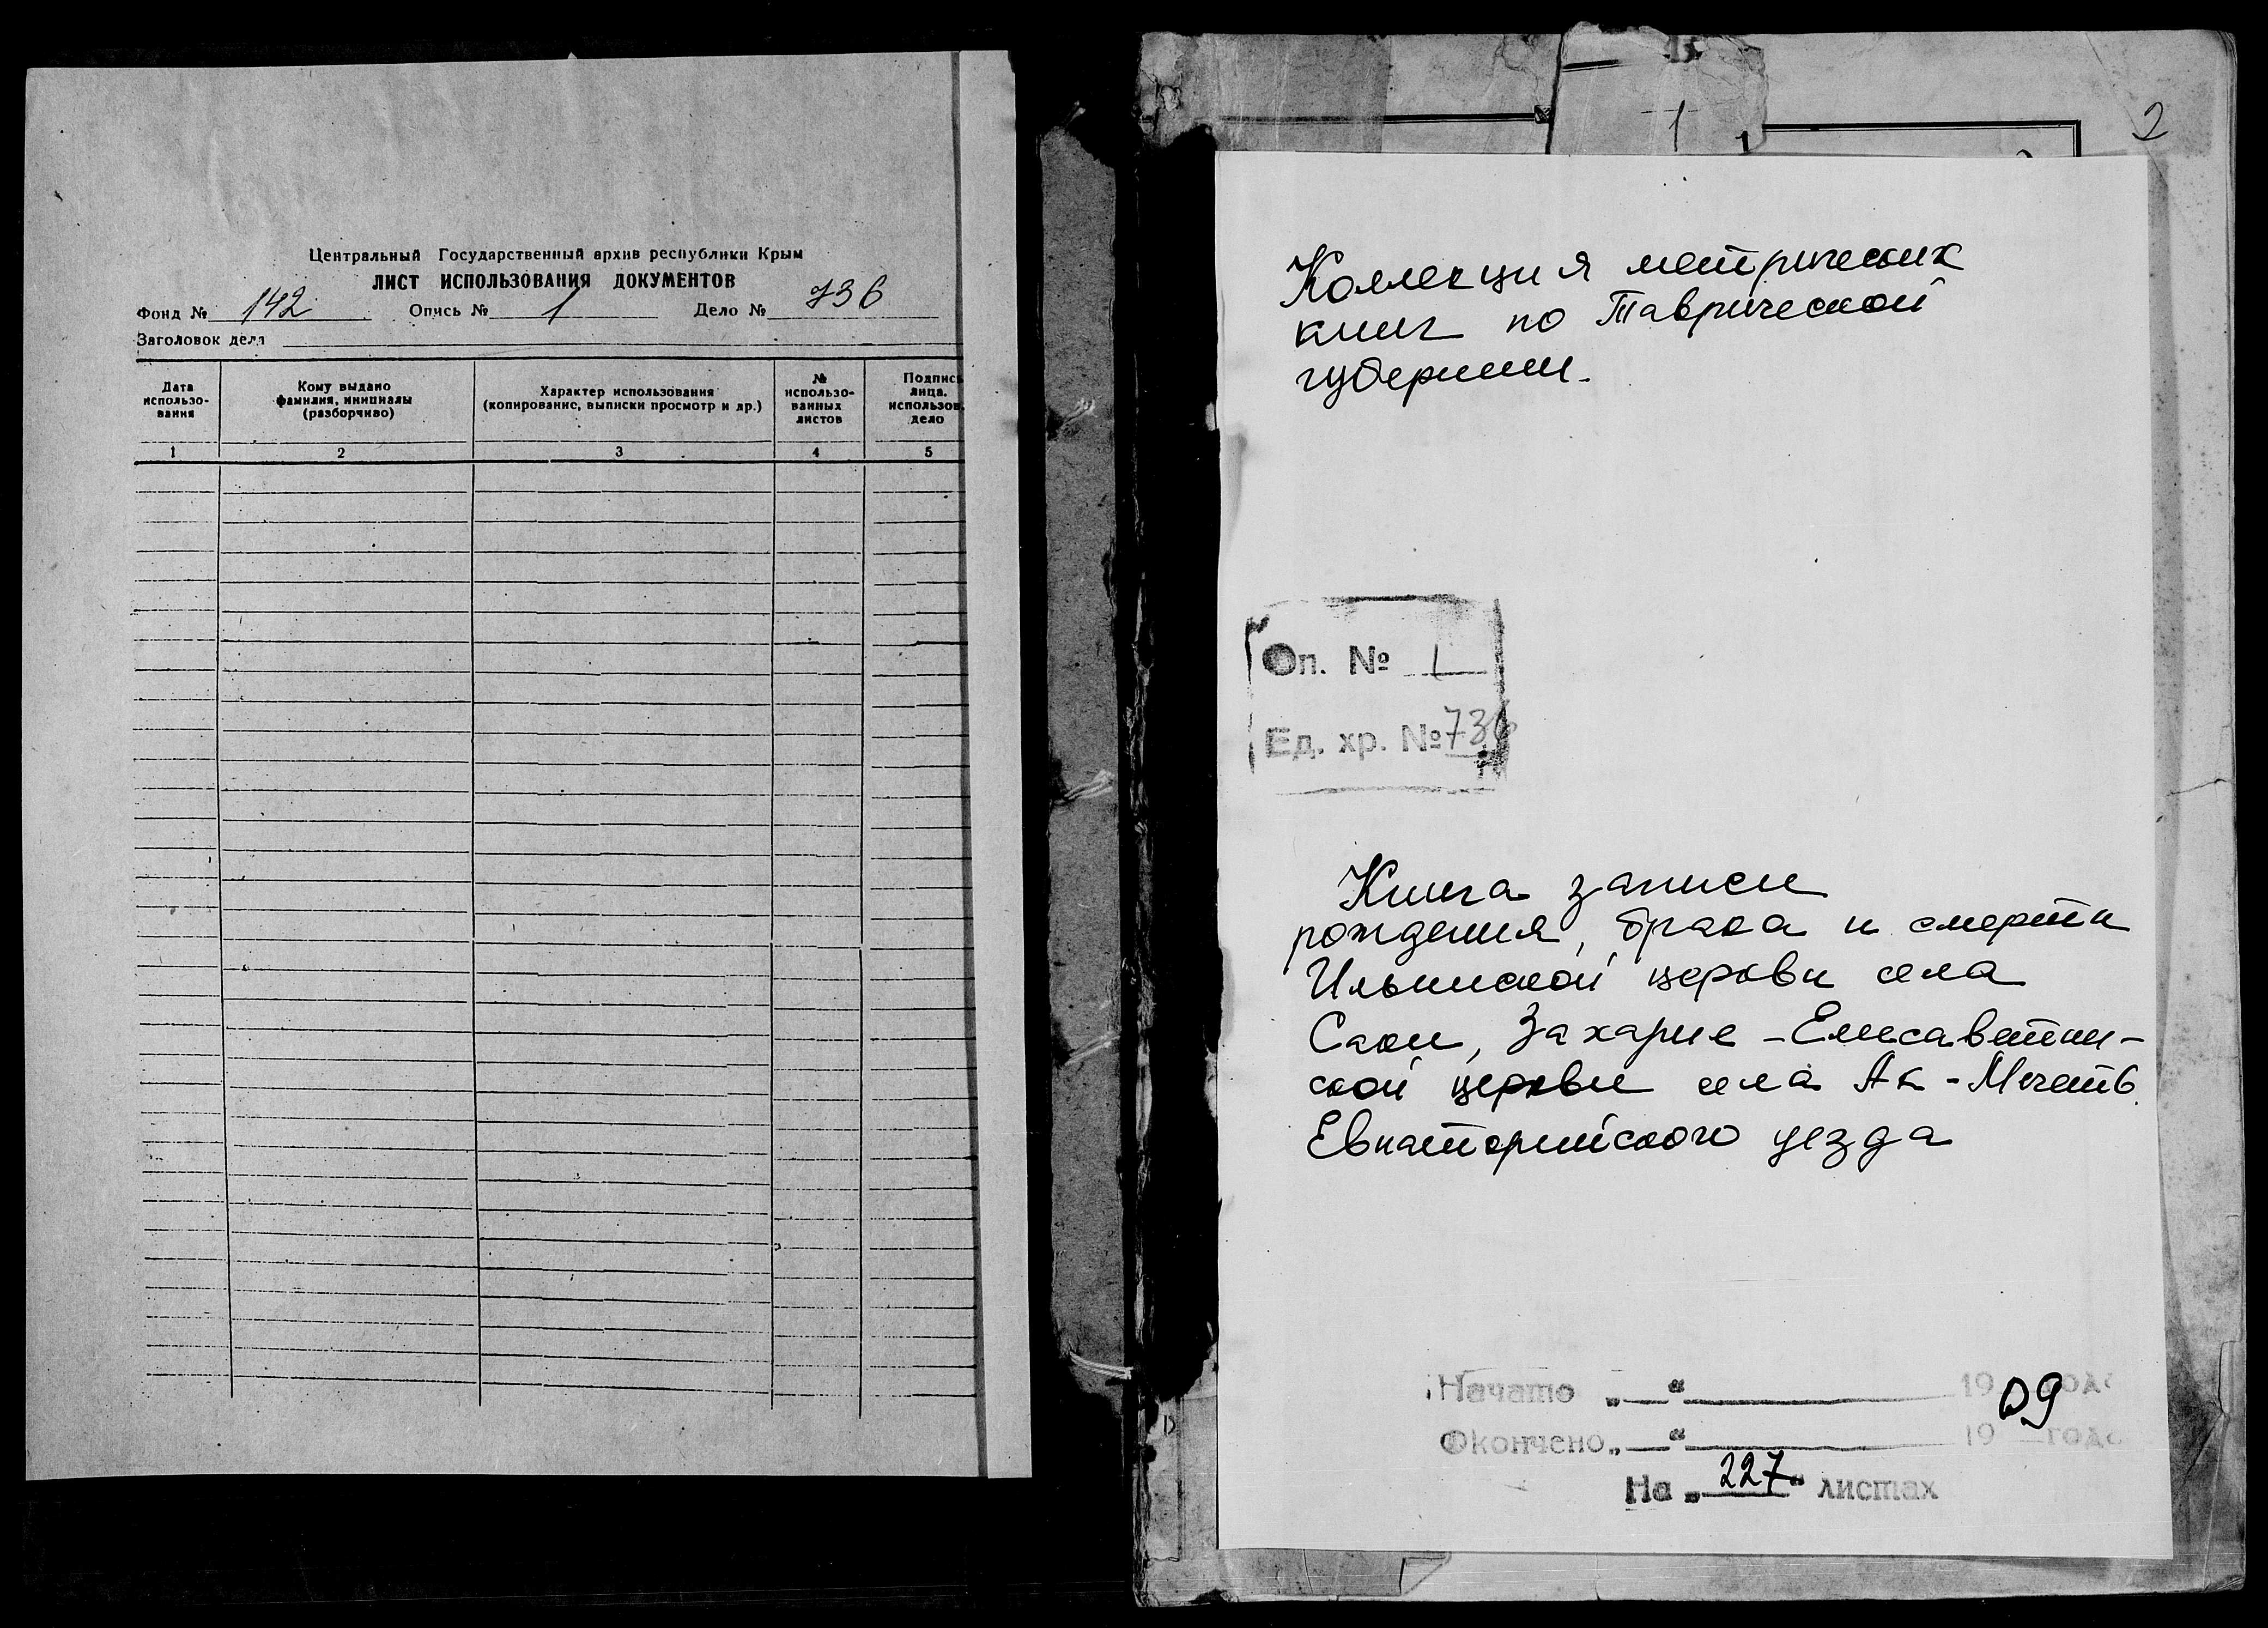 Центральный Государственный архив республики Крым
ЛИСТ ИСПОЛЬЗОВАНИЯ ДОКУМЕНТОВ
Фонд № 142 Опись № 1 Дело № 736
Заголовок дела
Дата использо-вания
Кому выдано фамилия, инициалы (разборчиво)
Характер использования (копирование, выписки просмотр и др.)
№ использо-ванных листов
Подпись лица. использов. дело
1 2 3 4 5
1
2
Коллекция метрических
книг по Таврической
губернии.
Оп. № 1
Ед. хр. № 736
Книга записи
рождения, брака и смерти
Ильинской церкви села
Саки, Захарие-Елисаветин-
ской церкви села Ак-Мечеть
Евпаторийского уезда
Начато „ “ 1909 года
Окончено „ “ 19 года
На „227“ листах